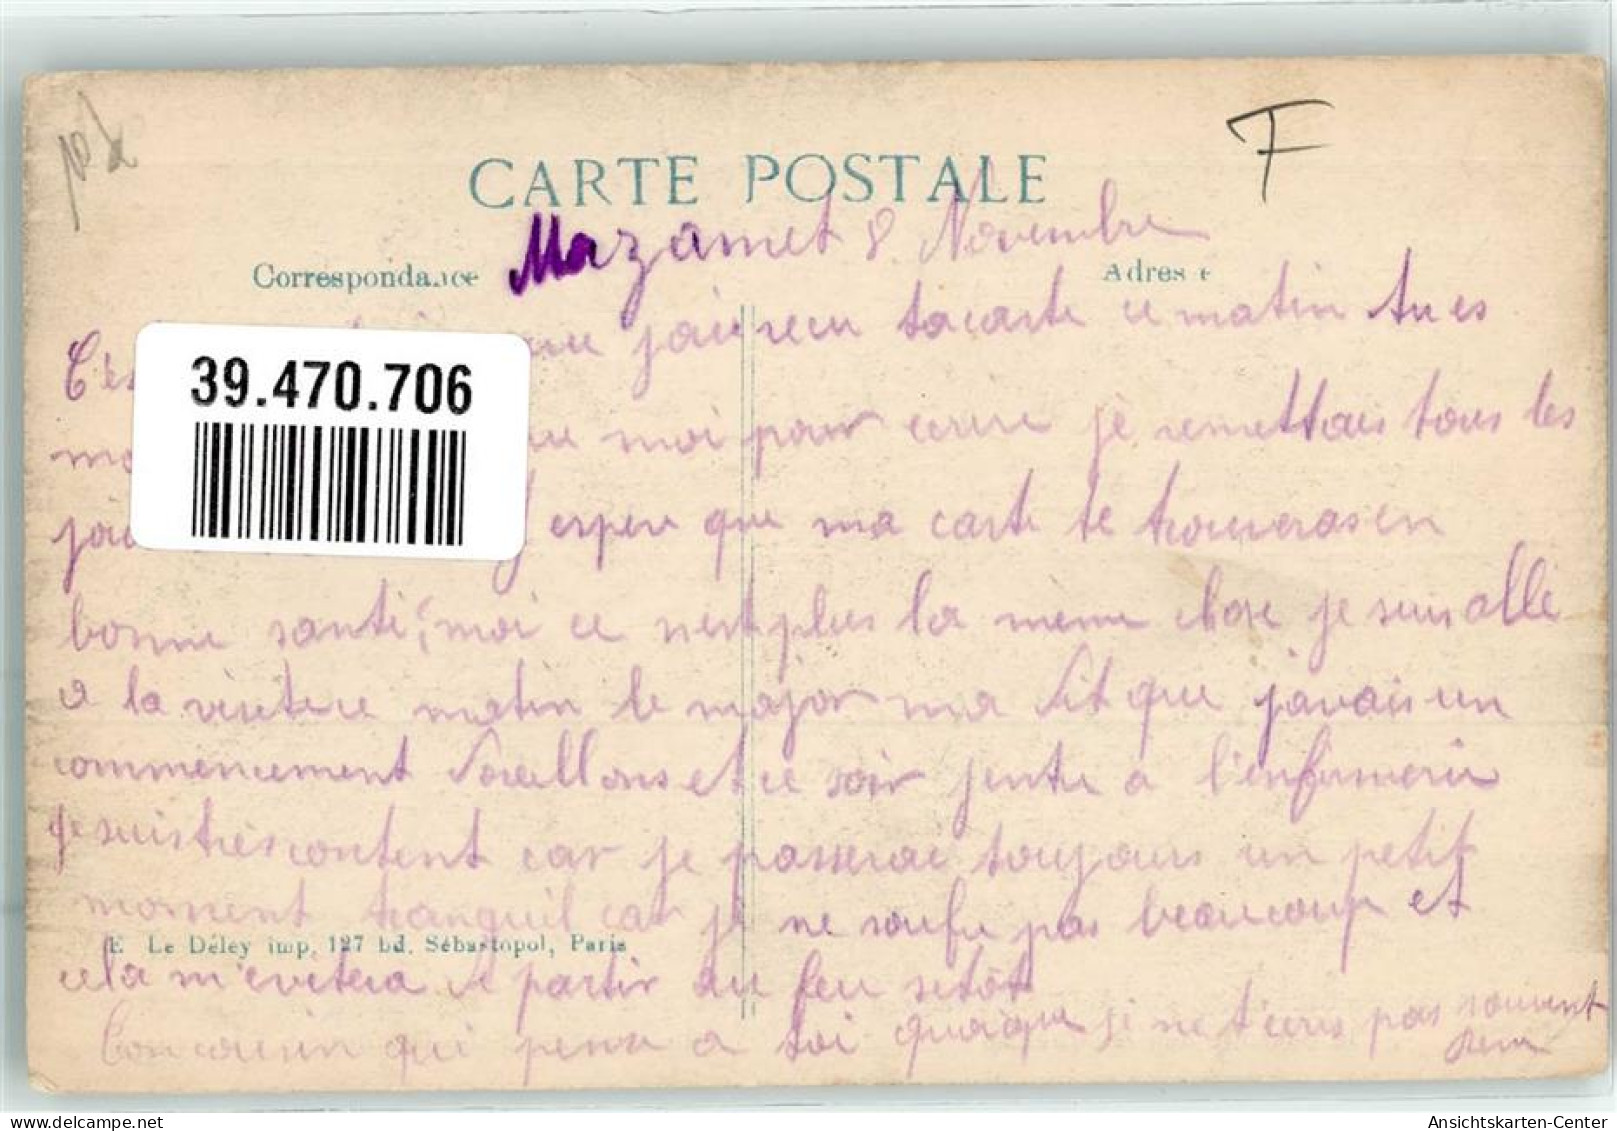 CARTE POSTALE
F
Mazamet 8 Novembre
Correspondance
Adres e
39.470.706
C'es j'ai recu ta carte ce matin tu es
moi pour ecrire je remettais tous les
espere que ma carte te trouveras en
bonne santé, moi ce n'est plus la meme chose je suis allé
a la visite ce matin le major ma dit que j'avais un
commencement d'oreillons et ce soir j'entre a l'enfirmerie
je suis très content car je passerai toujours un petit
moment tranquil car je ne soufre pas beaucoup et
E. Le Deley imp. 127 bd. Sébastopol, Paris
cela m'evitera de partir au feu sitôt
Ton cousin qui pense a toi quoique je ne t'ecris pas souvent
Ansichtskarten-Center